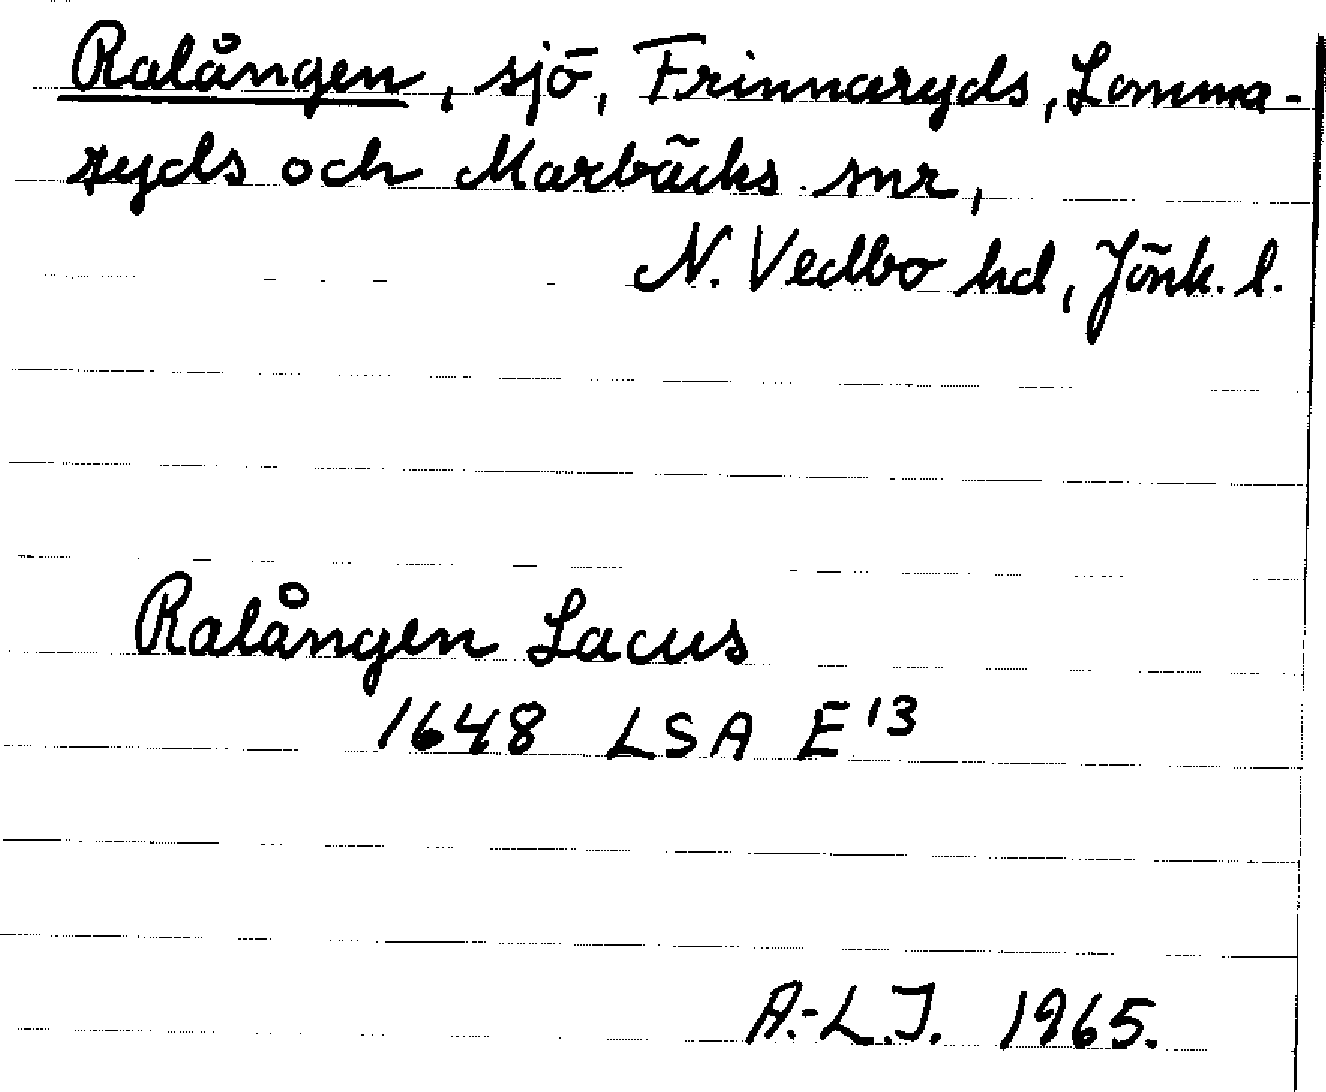 Ralången, sjö, Frinnaryds, Lomma-
ryds och Marbäcks snr,
N. Vedbo hd, Jönk. l.
Ralången Lacus
1648 LSA E 13
A.-L.J. 1965.